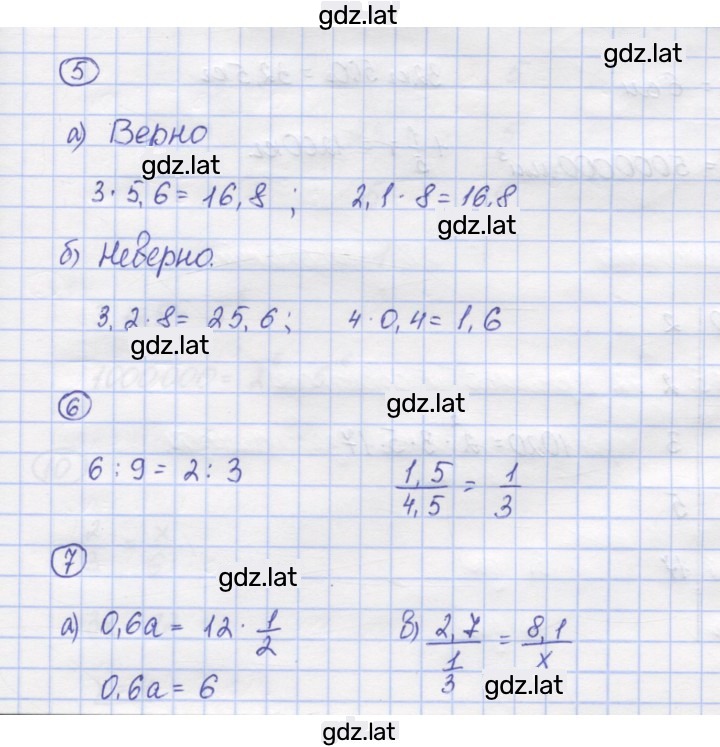 gdz.lat
gdz.lat
5
а) Верно
gdz.lat
3 · 5,6 = 16,8 ; 2,1 · 8 = 16,8
gdz.lat
б) Неверно.
3,2 · 8 = 25,6 ; 4 · 0,4 = 1,6
gdz.lat
6
gdz.lat
6 : 9 = 2 : 3 1,5/4,5 = 1/3
7
gdz.lat
а) 0,6а = 12 · 1/2 в) 2,7/(1/3) = 8,1/х
0,6а = 6
gdz.lat
gdz.lat